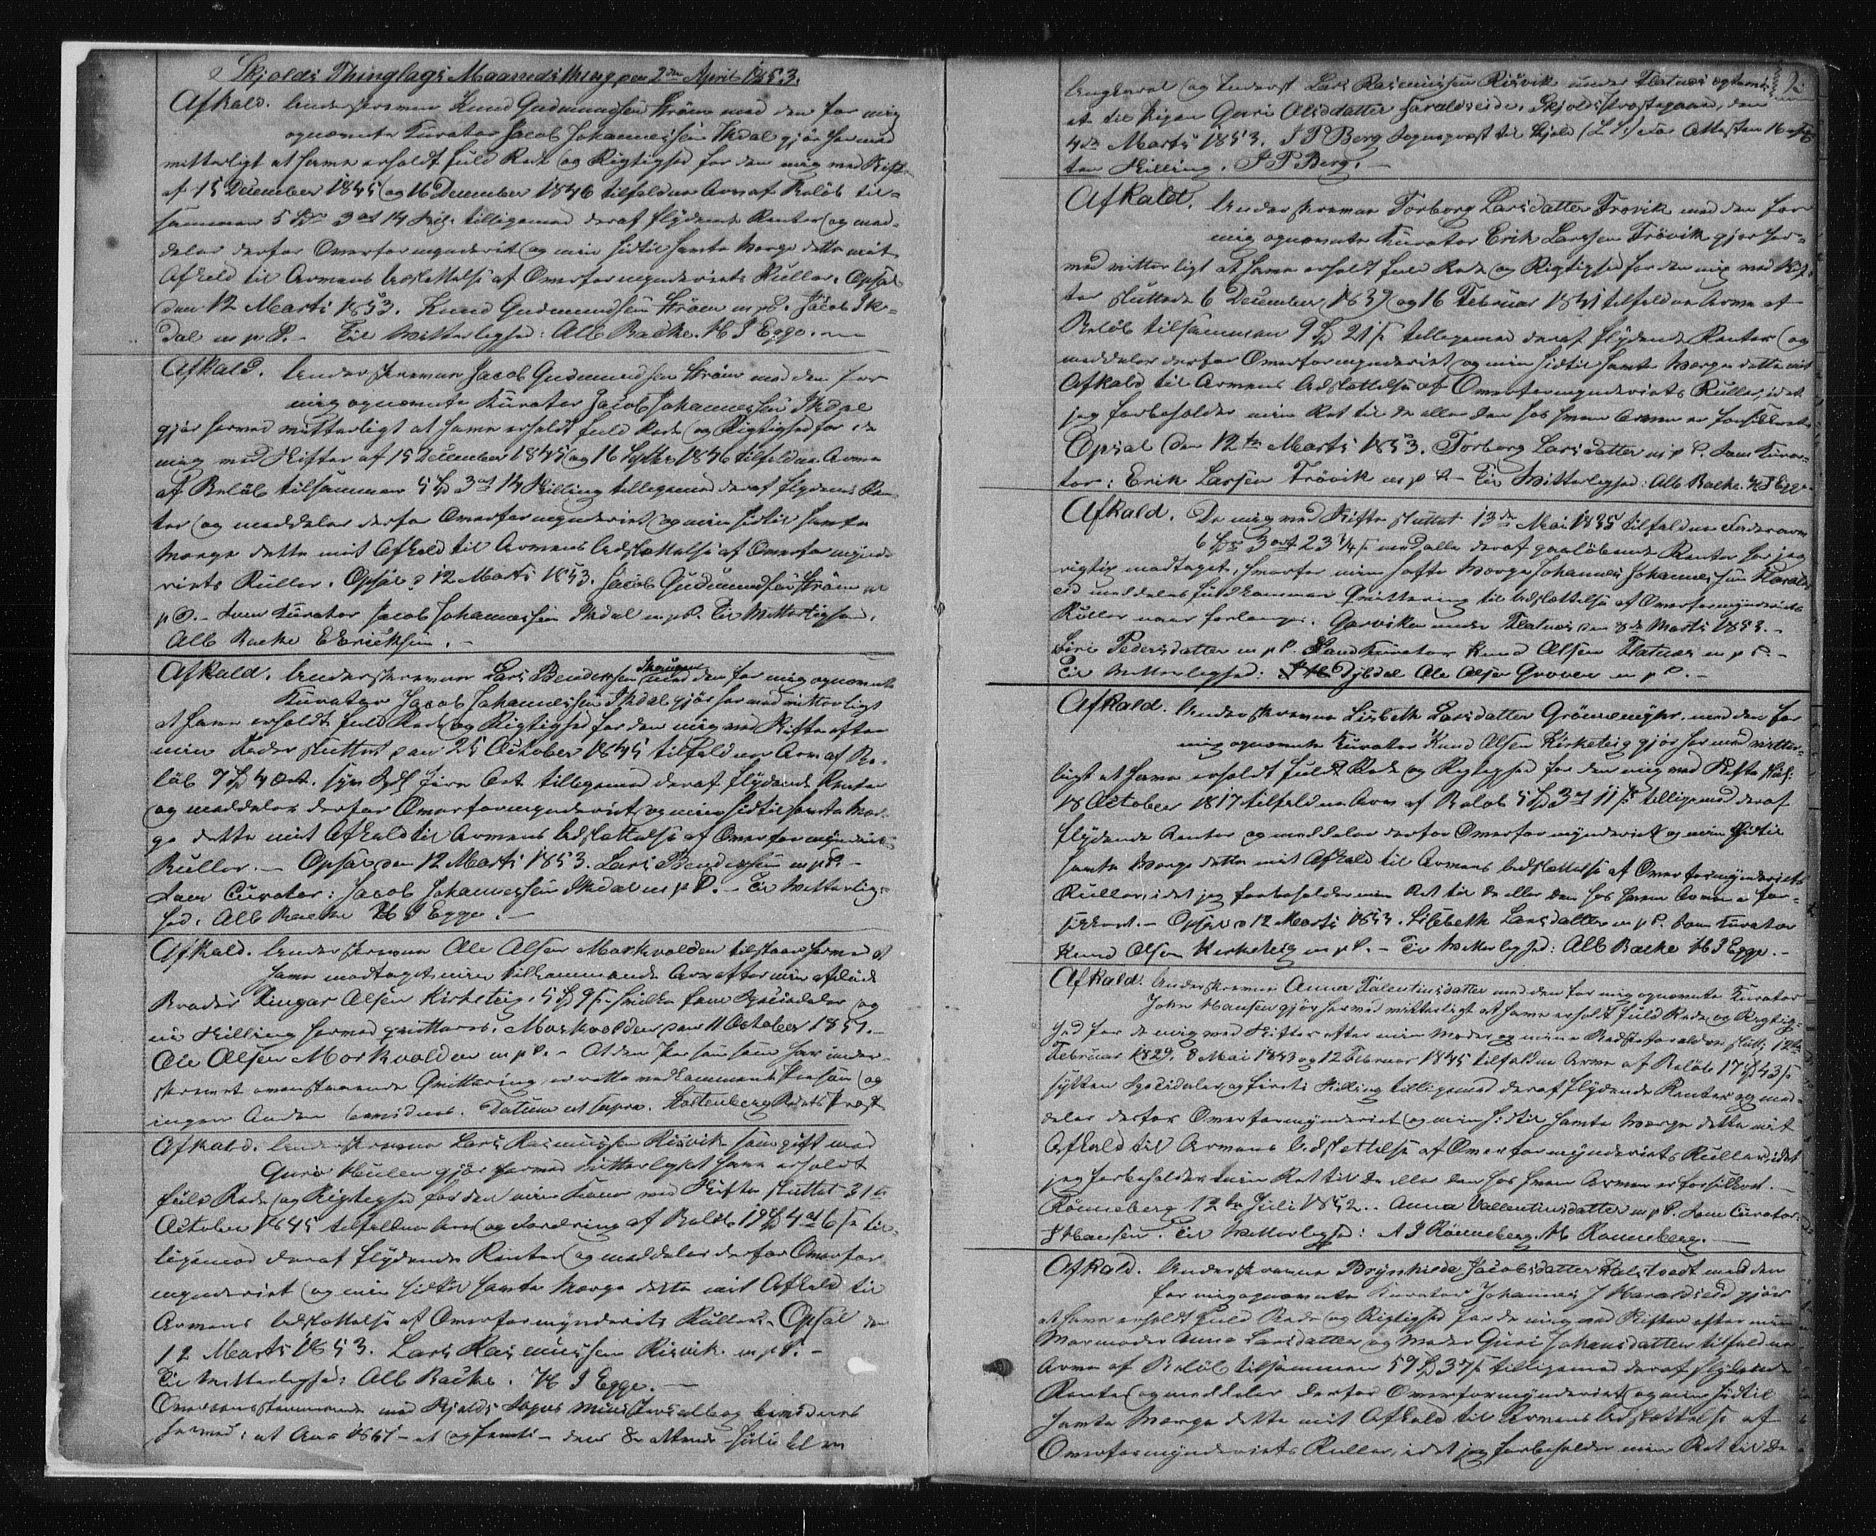 Skjolds Thinglags Maanedsthing den 2den April 1853.
Afkald. Underskrevne Knud Gudmundsen Strøm med den for mig
opnævnte Kurator Jacob Johannessen Ikdal gjør hermed
vitterligt at have erholdt fuld Rede og Rigtighed for den mig med Skift
af 15 December 1845 og 16 December 1846 tilfaldne Arv af Beløb til-
sammen 5 Spd 3 ort 14 Skil. tilligemed deraf flydende Renter og med-
deler derfor Overformynderiet og min hidtil havte Værge dette mit
Afkald til Arvens Udslettelse af Overformynderiets Ruller. Opsal
den 12 Marts 1853. Knud Gudmundsen Strøm m p P. Jacob Ik-
dal m p P. – Til Vitterlighed: Alb Backe. H I Egge.
Afkald. Underskrevne Jacob Gudmundsen Strøm med den for
mig opnævnte Kurator Jacob Johannessen Ikdal
gjør hermed vitterligt at have erholdt fuld Rede og Rigtighed for de
mig med Skifter af 15 December 1845 og 16 1846 tilfaldne Arve
af Beløb tilsammen 5 Spd 3 ort 14 Skilling tilligemed deraf flydende Ren-
ter og meddeler derfor Overformynderiet og min hidtil havte
Værge dette mit Afkald til Arvens Udslettelse af Overformynde-
riets Ruller. Opsal d 12 Marts 1853. Jacob Gudmundsen Strøm m
p P. – som Kurator Jacob Johannessen Ikdal m p P. Til Vitterlighed.
Alb Backe E Ericksen. –
Afkald. Underskrevne Lars Bendixsen med den for mig opnævnte
Kurator Jacob Johannessen Ikdal gjør hermed vitterligt
at have erholdt fuld Rede og Rigtighed for den mig ved Skifte efter
min Fader sluttet den 25 October 1845 tilfaldne Arv af Be-
løb 7 Spd 4 Ort. syv Spd fire Ort tilligemed deraf flydende Renter
og meddeler derfor Overformynderiet og min hidtil havte Vær-
ge dette mit Afkald til Arvens Udslettelse af Overformynderiets
Ruller. – Opsal den 12 Marts 1853. Lars Bendixsen m p P. –
som Curator: Jacob Johannessen Ikdal m p P. – Til Vitterlig-
hed. Alb Backe H I Egge. –
Afkald. Underskrevne Ole Olsen Markvolden tilstaar hermed at
have modtaget min tilkommende Arv efter min afdøde
Broder Olsen Kirketeig, 5 Spd 9 s. hvilke fem Speciedaler og
ni Skilling hermed qvitteres. Morkvolden den 11 October 1851.
Ole Olsen Morkvolden m p P. – At den Person som har under-
skrevet ovenstaaende Qvittering, er rette vedkommende Person og
ingen Anden bevidnes. Datum ut supra.
Afkald. Underskrevne Lars Rasmussen Risvik som gift med
Guro gjør hermed vitterligt have erholdt
fuld Rede og Rigtighed for den min Kone med Skifte sluttet 31te
October 1845 tilfaldne Arv og Fordring af Beløb 19 Spd 4 ort 6 s. til-
ligemed deraf flydende Renter og meddeler derfor Overfor-
mynderiet og min hidtil havte Værge dette mit Afkald til
Arvens Udslettelse af Overformynderiets Ruller. Opsal den
12 Marts 1853. Lars Rasmussen Risvik m p P. –
Til Vitterlighed: Alb Backe. H I Egge. –
Overensstemmende med Skjolds Sogns Ministerialbog bevidnes
hermed: at Aar 1851 – et og femti – den 8de ottende Juli blev
Ungkarl og Enderst Lars Rasmussen Risvik under Flatnæs
et til Pigen Guri Olsdatter Haraldseide. Skjolds Præstegaard, den
4de Marts 1853. J P Berg Sognepræst til Skjold (L S) 16 sex-
ten Skilling. J P Berg. –
Afkald. Underskrevne Torborg Larsdatter Trøvik med den for
mig opnævnte Kurator Erik Larssen Trøvik gjør her-
med vitterligt at have erholdt fuld Rede og Rigtighed for den mig med Skif-
ter sluttede 6 December 1839 og 16 Februar 1841 tilfaldne Arve af
Beløb tilsammen 9 Spd 21 s. tilligemed deraf flydende Renter og
meddeler derfor Overformynderiet og min hidtil havte Værge dette mit
Afkald til Arvens Udslettelse af Overformynderiets Ruller, idet
jeg forbeholder min Ret til de eller den hos hvem Arven er forsikkret.
Opsal den 12te Marts 1853. Torborg Larsdatter m p P. som Kura-
tor: Erik Larsen Trøvik m p P – Til Vitterlighed: Alb Backe. H I Egge.
Afkald. De mig med Skifte sluttet 13de Mai 1835 tilfaldne Faderarv
6 Spd 3 ort 23 1/4 s. med alle deraf paaløbende Renter har jeg
rigtig modtaget, hvorfor min havte Værge Johannes Johannessen
meddeles fuldkommen Qvittering til Udslettelse af Overformynderiets
Ruller naar forlanges. Garviken under Flatnæs den 8de Marts 1853. –
Siri Pedersdatter m p P. som Kurator Knud Olsen Flatnæs m p P –
Til Vitterlighed: Ole Olsen Grover m p P. –
Afkald. Underskrevne Lisbeth Larsdatter Grønnemyhr med den for
mig opnævnte Kurator Knud Olsen Kirketeig gjør hermed vitter-
ligt at have erholdt fuld Rede og Rigtighed for den mig med Skifte slut.
18 October 1817 tilfaldne Arv af Beløb 5 Spd 3 ort 11 s tilligemed deraf
flydende Renter og meddeler derfor Overformynderiet og min hidtil
havte Værge dette mit Afkald til Arvens Udslettelse af Overformynderiets
Ruller, idet jeg forbeholder min Ret til de eller den hos hvem Arven er for-
sikkret. – Opsal d 12 Marts 1853. Lisbeth Larsdatter m p P. som Kurator
Knud Olsen Kirketeig m p P. – Til Vitterlighed: Alb Backe H I Egge. –
Afkald. Underskrevne Anna Valentinsdatter med den for mig opnævnte Kurator
John Hansen gjør hermed vitterligt at have erholdt fuld Rede og Rigtig-
hed for de mig med Skifter efter min Moder og mine Bedsteforældre slutt. 12te
Februar 1829, 8 Mai 1843 og 12 Februar 1845 tilfaldne Arve af Beløb 17 Spd 43 s
sytten Speciedaler og Skilling tilligemed deraf flydende Renter og med-
deler derfor Overformynderiet og min hidtil havte Værge dette mit
Afkald til Arvens Udslettelse af Overformynderiets Ruller, idet
jeg forbeholder min Ret til de eller den hos hvem Arven er forsikkret. –
Rønneberg 12te Juli 1852. – Anna Vallentinsdatter m p P. som Curator:
J Hansen. Til Vitterlighed: A J Rønneberg. H Rønneberg. –
Afkald. Underskrevne Brynhilda Jacobsdatter med den
for mig opnævnte Kurator Johannes J gjør
at have erholdt fuld Rede og Rigtighed for de mig med Skiften efter min
Mormoder Anna Larsdatter og Moder Guri Johansdatter tilfaldne
Arve af Beløb tilsammen 59 Spd 37 s tilligemed deraf flydende
Renter og meddeler derfor Overformynderiet og min hidtil
havte Værge dette mit Afkald til Arvens Udslettelse af
Overformynderiets Ruller, idet jeg forbeholder min Ret til de